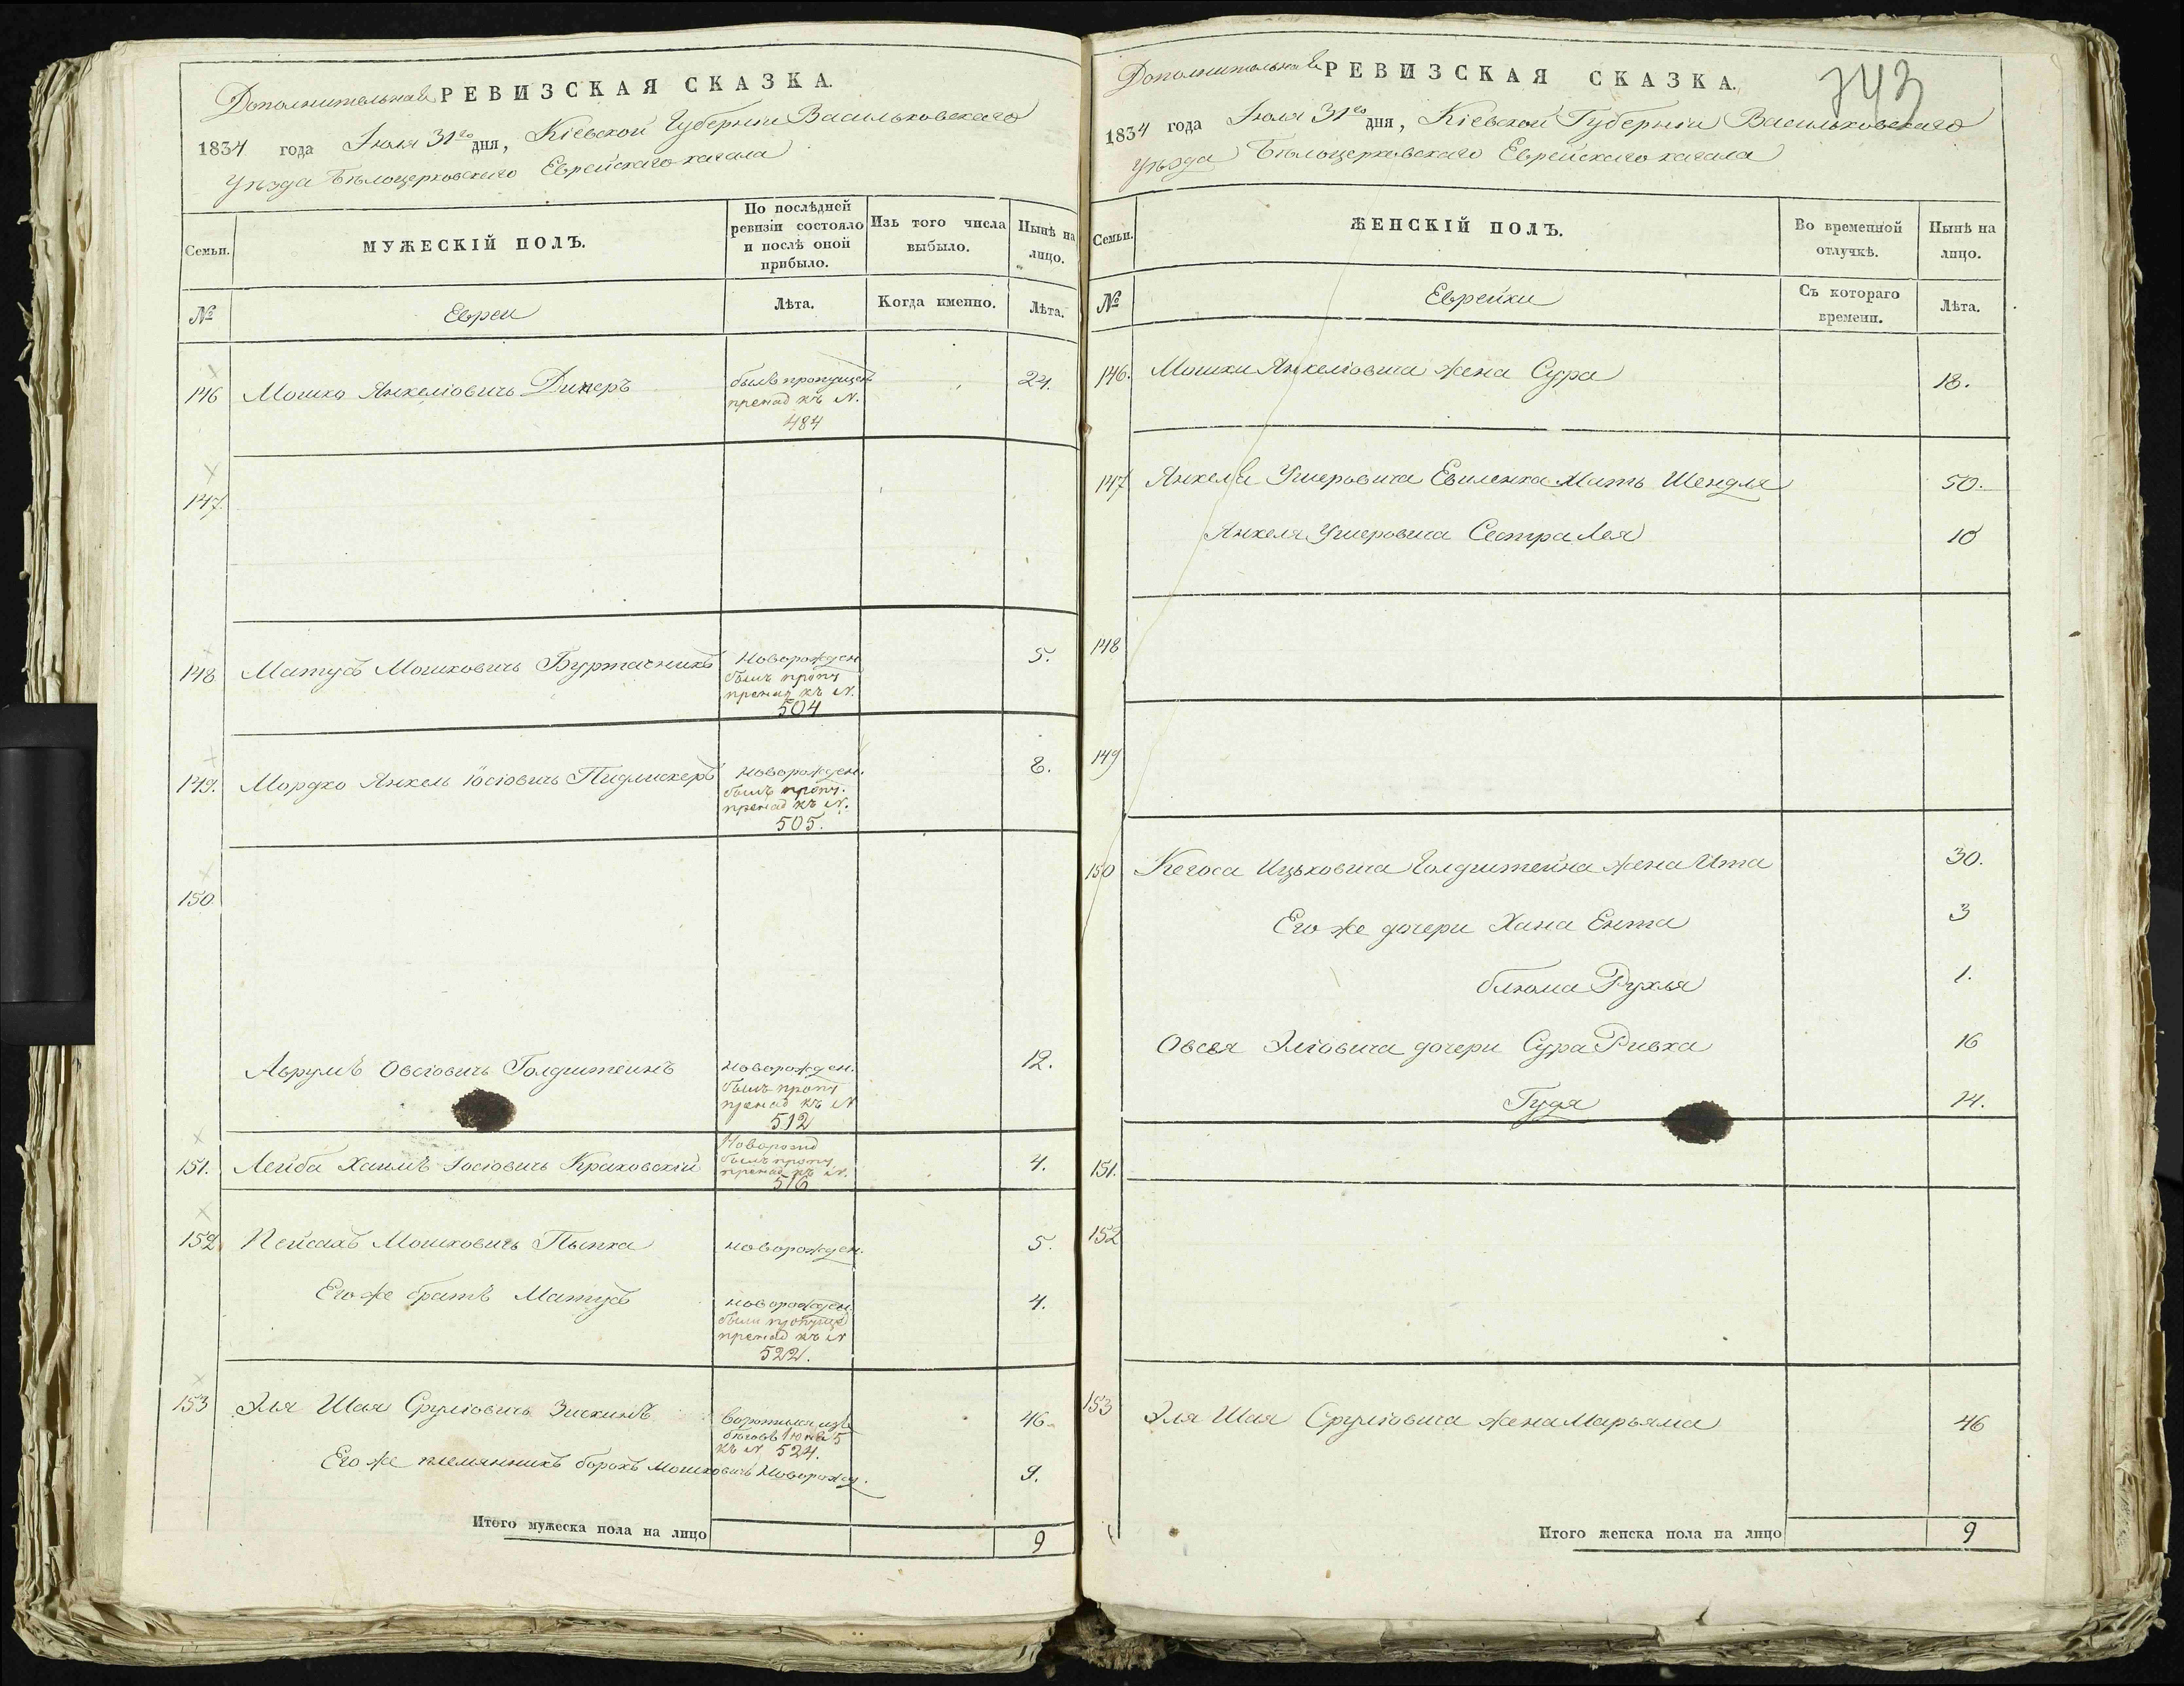 Дополнительная РЕВИЗСКАЯ СКАЗКА.
1834 года Іюля 31го дня, Кіевской Губерніи Васильковскаго
Уѣзда Бѣлоцерковскаго Еврейскаго кагала
Семьи.
МУЖЕСКІЙ ПОЛЪ.
По послѣдней ревизіи состояло и послѣ оной прибыло.
Изъ того числа выбыло.
Нынѣ на лицо.
№
Евреи
Лѣта.
Когда именно.
Лѣта.
146 Мошко Янкеліовичъ Дикеръ
былъ пропущен
пренад къ N.
484
24.
147.
148 Матусъ Мошковичъ Буртасникъ
Новорожден
былъ пропу
пренад къ N.
504
5.
149. Мордко Янкель Іосіовичъ Пидлискеръ
новорожден.
былъ пропу.
пренад къ N.
505.
8.
150
Аврумъ Овсіовичъ Голдштеинъ
новорожден.
былъ пропу
пренад къ N
512
12.
151. Лейба Хаимъ Іосіовичъ Краковскій
Новорожд
былъ пропу
пренад къ N.
516
4.
152 Пейсахъ Мошковичъ Пынка
новорожден.
5.
Его же братъ Матусъ
новорожден.
были пропущ
пренад къ N
522.
4.
153 Эля Шая Сруліовичъ Зискинъ
воротился изъ
бѣговъ
къ N 524.
46.
Его же племянникъ борохъ Мошковичъ Новорожд.
9.
Итого мужеска пола на лицо
9
Дополнительная РЕВИЗСКАЯ СКАЗКА.
743
1834 года Іюля 31го дня, Кіевской Губерніи Васильковскаго
Уѣзда Бѣлоцерковскаго Еврейскаго кагала
Семьи.
ЖЕНСКІЙ ПОЛЪ.
Во временной отлучкѣ.
Нынѣ на лицо.
№
Еврейки
Съ котораго времени.
Лѣта.
146. Мошки Янкеліовича жена Сура 18.
147 Янкеля Ушеровича Евиленка Мать Шендля 50.
Янкеля Ушеровича Сестра Лея 10
148
149
150 Кегоса Ицьковича Голдштейна жена Ита 30.
Его же дочери Хана Ента 3
блюма Рухля 1.
Овсея Эліовича дочери Сура Ривка 16
Гудя 14.
151.
152
153 Эля Шая Сруліовича жена Марьяма 46
Итого женска пола на лицо
9